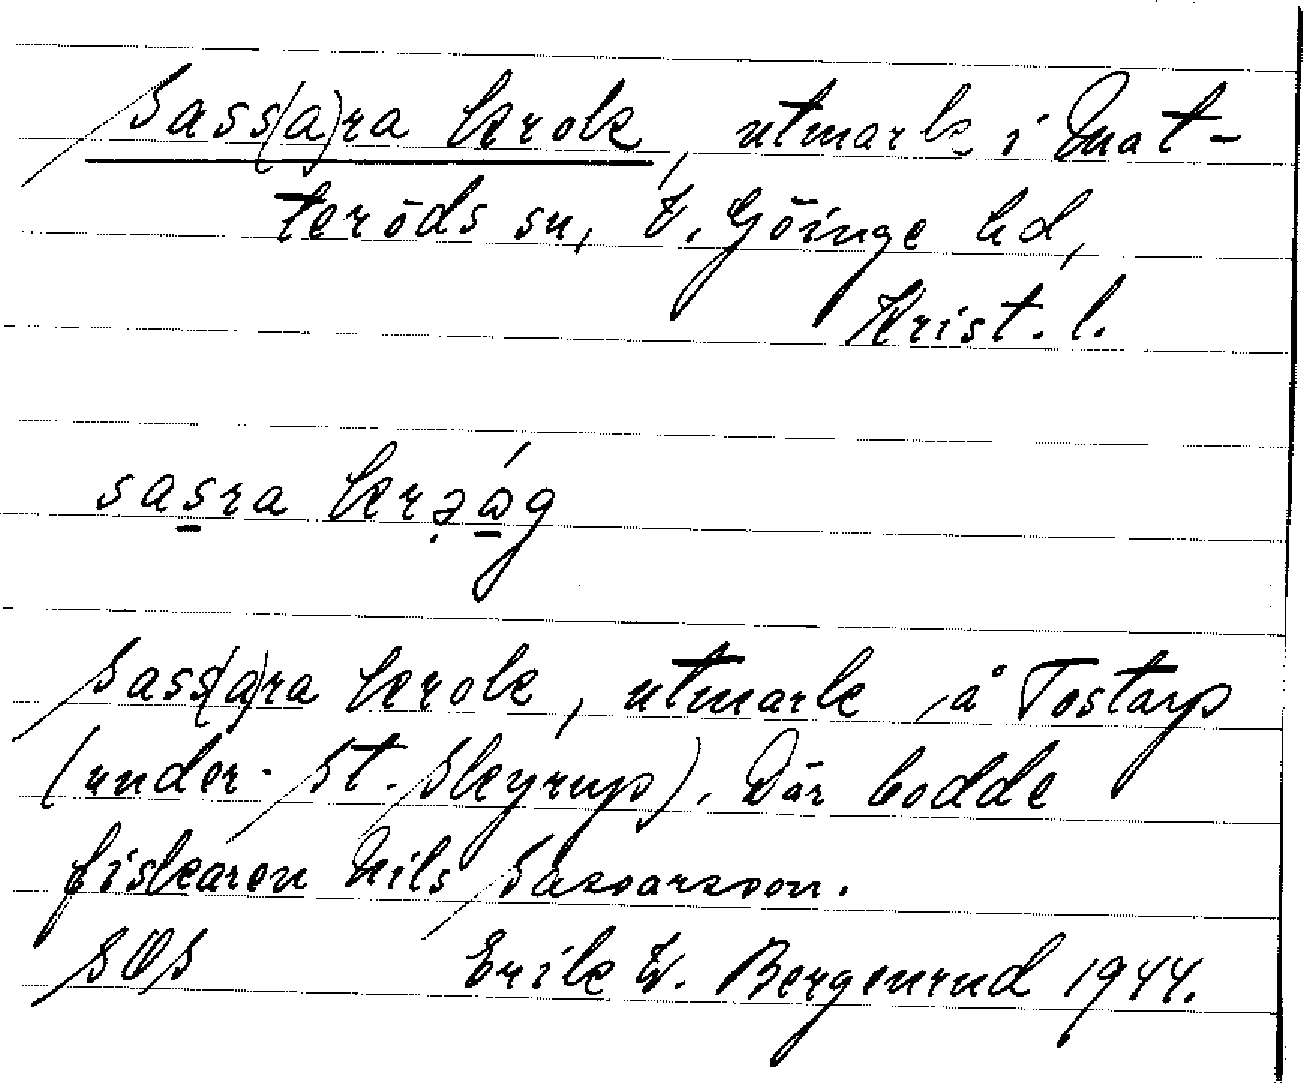 Sass(a)ra krok, utmark i Mat-
teröds sn, V. Göinge hd,
Krist. l.
sasra krəåg
Sass(a)ra krok, utmark å Tostarp
(under St. Skyrup). Där bodde
fiskaren Nils Sassarsson.
SOS Erik W. Bergenrud 1944.